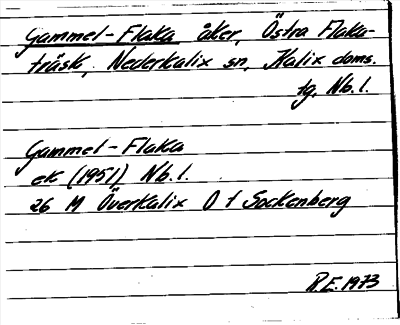 Gammel-Flaka åker, Östra Flaka-
träsk, Nederkalix sn, Kalix doms.
tg. Nb.l.
Gammel-Flaka
ek (1951) Nb.l.
26 M Överkalix O t Sockenberg
R.E. 1973